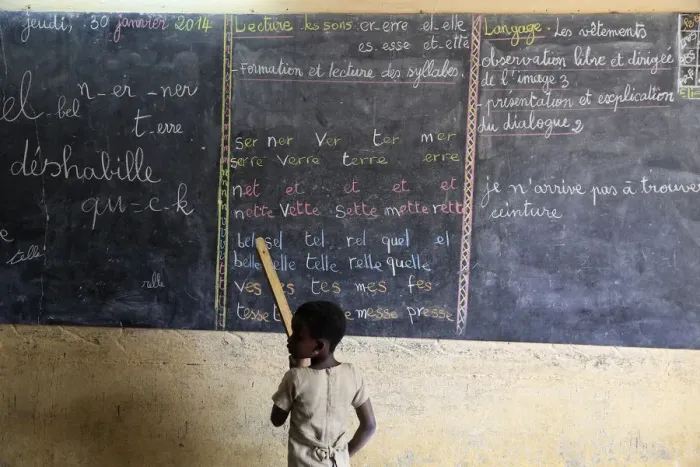 jeudi, 30 janvier 2014
el bel n-er-ner
t-erre
déshabille
qu=c-k
telle
relle
Lecture les sons er-erre et-elle
es-esse et-ette
- Formation et lecture des syllabes.
ser ner ver ter mer
serre verre terre erre
net et et et et
nette vette sette mette rette
bel sel tel rel quel el
belle elle telle relle quelle
ves es tes mes fes
tesse messe presse
Langage: Les vêtements
observation libre et dirigée
de l'image 3
- présentation et explication
du dialogue 2
je n'arrive pas à trouve
ceinture